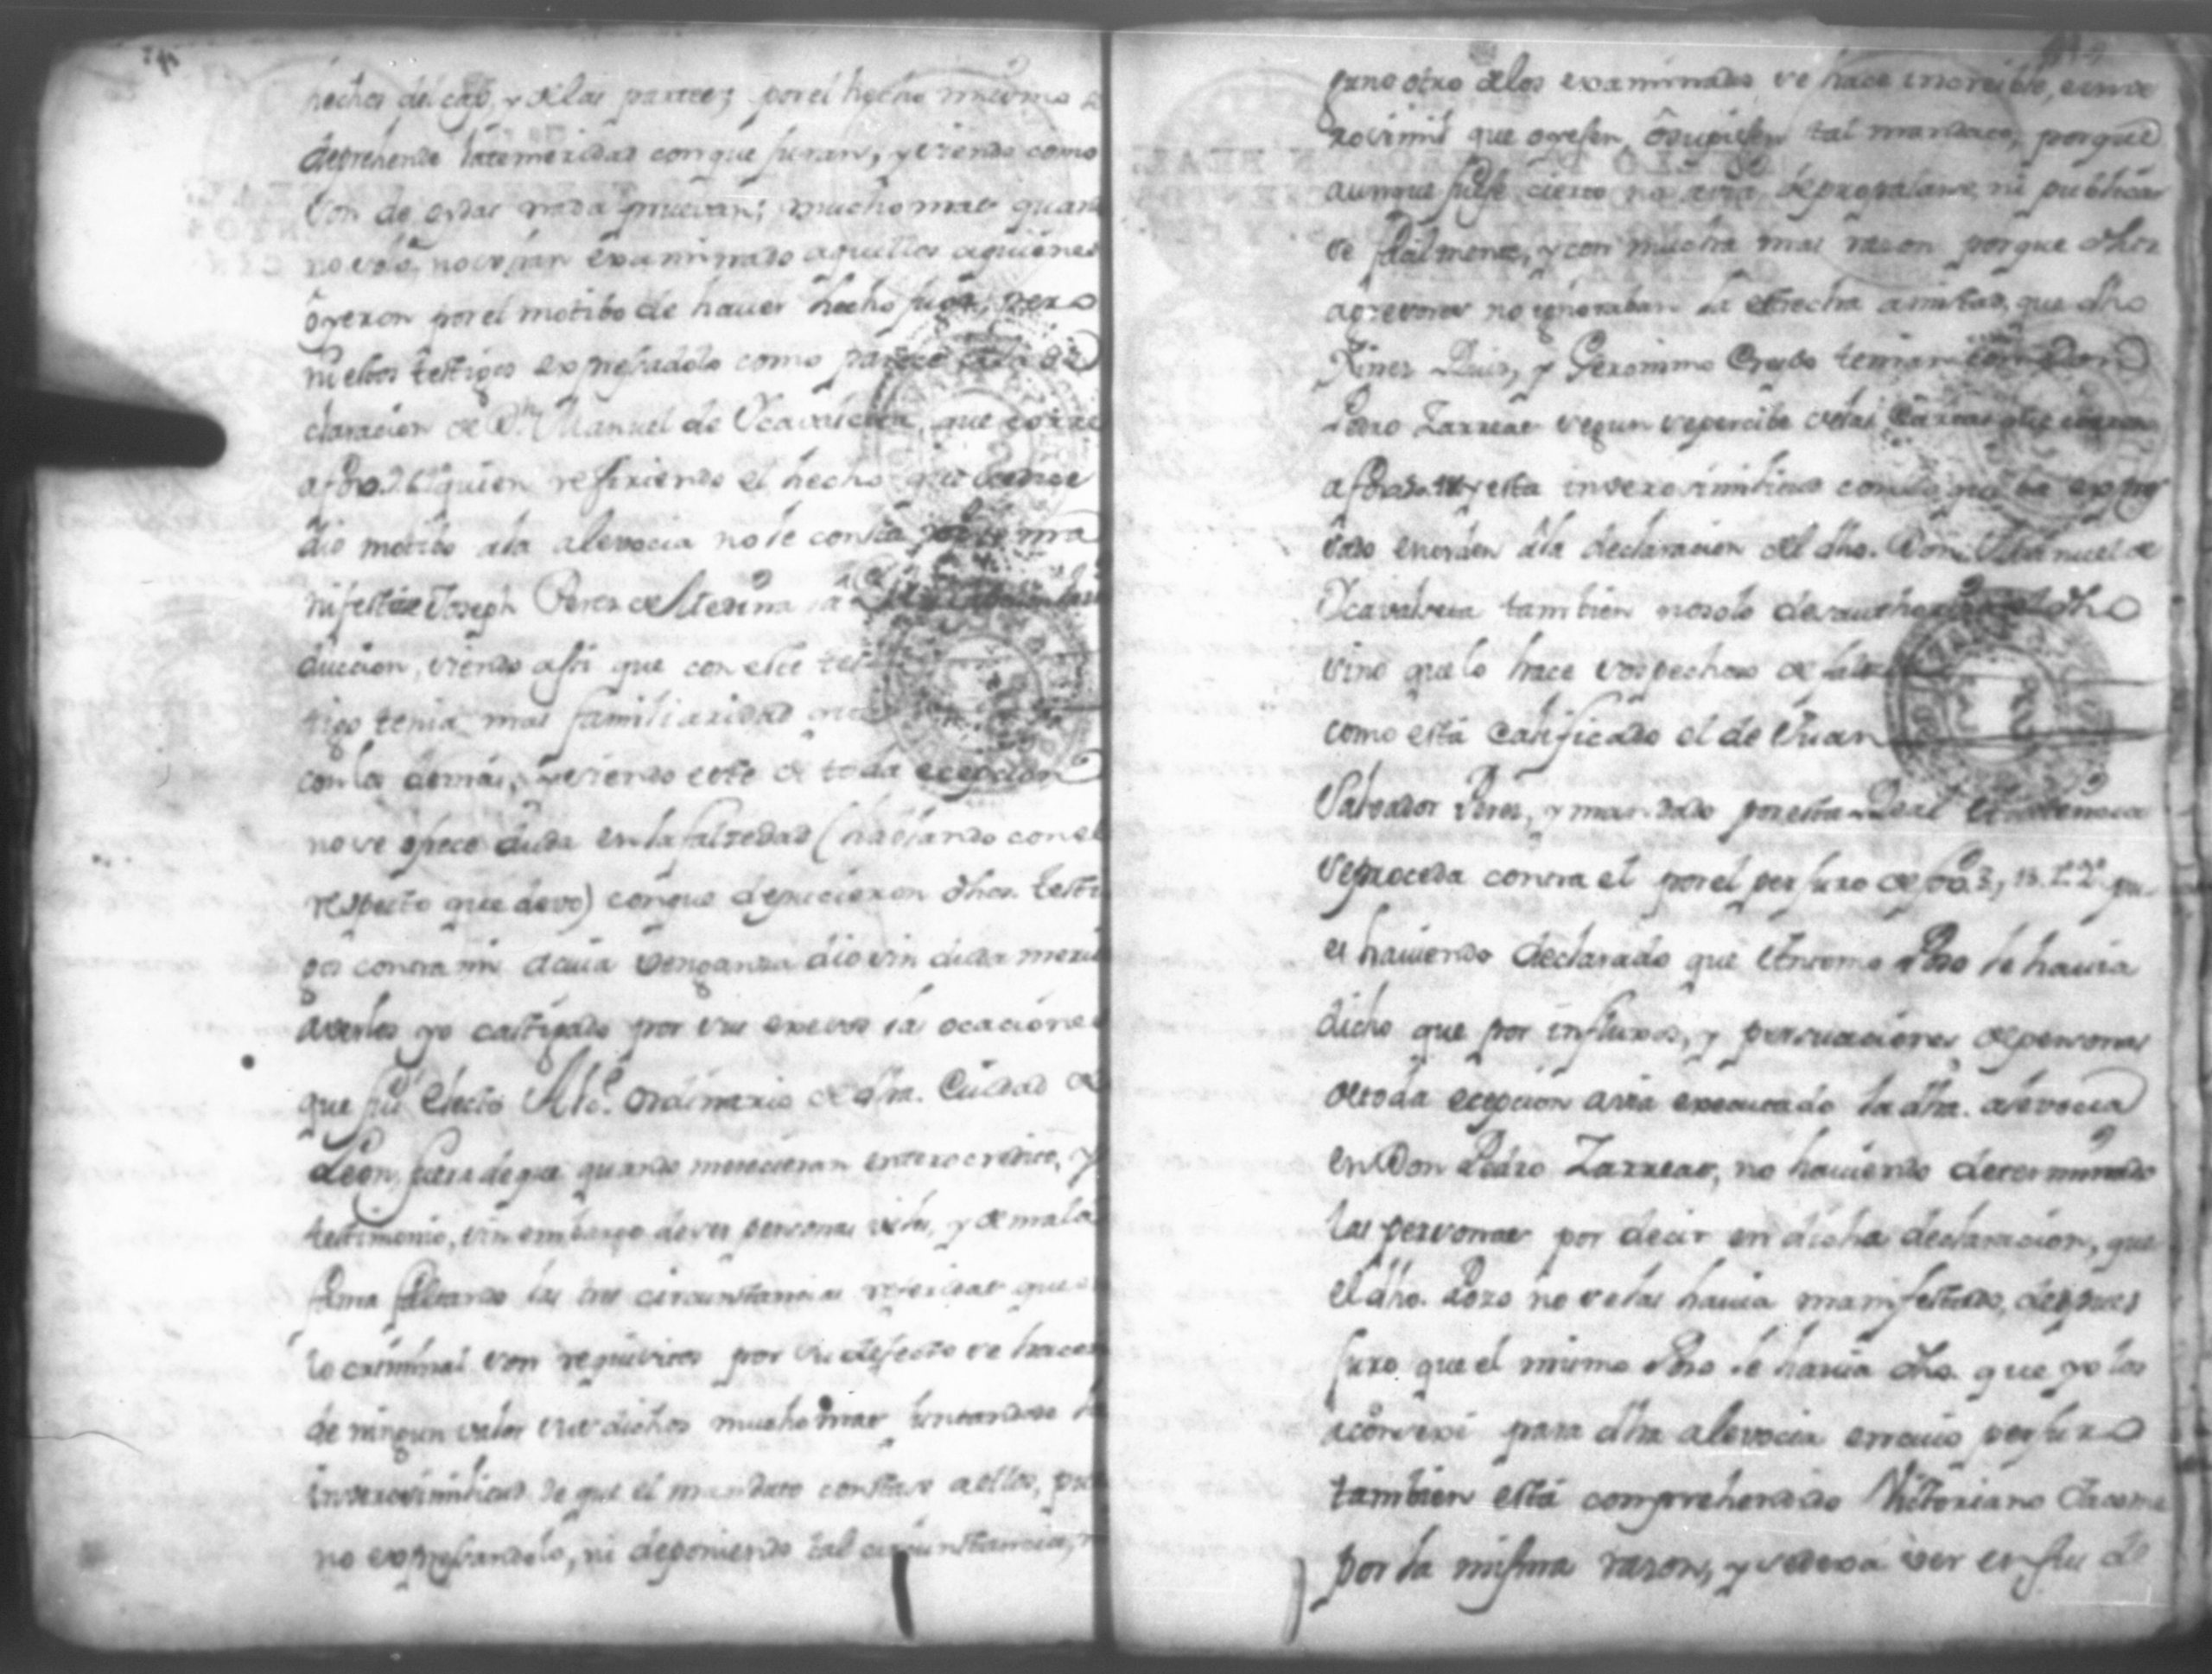 hechos del caso, y de las partes; por el hecho mismo se
deprehende la temeridad con que juran, y siendo como
son de oydas nada pruevan; mucho mas quan
no solo, no se han examinado aquellos a quienes
oyeron por el motibo de hauer hecho fuga, pero
ni ellos testigos expresadolo como parece de la de
claracion de Dn. Manuel de Ycavalseta, que corre
a fo. quien refiriendo el hecho que
dio motibo a la alevocia no le consta, ni se ma
nifestase Joseph Perez de Medina
duccion, siendo assi que con este tes
tigo tenia mas familiaridad que
con los demas, y siendo este de toda ecepcion
no se ofrece duda en la falzedad (hablando con el
respeto que devo) con que depucieron dhos. testi
gos contra mi de cuia venganza dio sin duda merito
averlos yo castigado por sus exesos las ocaciones
que fui electo Alce. ordinario de dha. Ciudad de
Leon, fuera de que quando merecieran entero credito, y
testimonio, sin embargo de ser personas viles, y de mala
fama faltando las tres circunstancias referidas que en
lo criminal son requisitos por su defecto se hacen
de ningun valor sus dichos mucho mas juntandose la
inverosimilitud de que el mandato constase a ellos, pues
no expresandolo, ni deponiendo tal circunstancia, ni
guno otro de los examinados se hace increible, e inve
rosimil que oyesen, o supiesen tal mandato, porque
aunque fuese cierto no avia de propalarse, ni publicar
se facilmente, y con mucha mas razon porque dhos
agresores no ignoraban la estrecha amistad, que dho
Xines Ruiz, y Geronimo Crespo tenian con Don
Pedro Zarreae segun se percibe de las Cartas que corren
a fo. y esta inverosimilitud con lo que ba expre
sado en orden a la declaracion del dho. Don Manuel de
Ycavalseta tambien no solo desauthoriza el dho
sino que lo hace sospechoso de falso
como está calificado el de Juan
Salvador Perez, y mandado por esta Real Audiencia
se proceda contra el por el perjuro de fo. 3, pu
es haviendo declarado que Antonio Pozo le havia
dicho que por influxos, y persuaciones de personas
de toda ecepcion avia executado la dha. alevocia
en Don Pedro Zarreae, no haviendo determinado
las personas por decir en dicha declaracion, que
el dho. Pozo no se las havia manifestado, despues
juro que el mismo Pozo le havia dho. que yo los
aconsexé para dha alevocia en cuio perjuro
tambien está comprehendido Victoriano
por la misma razon, y se dexa ver en su de